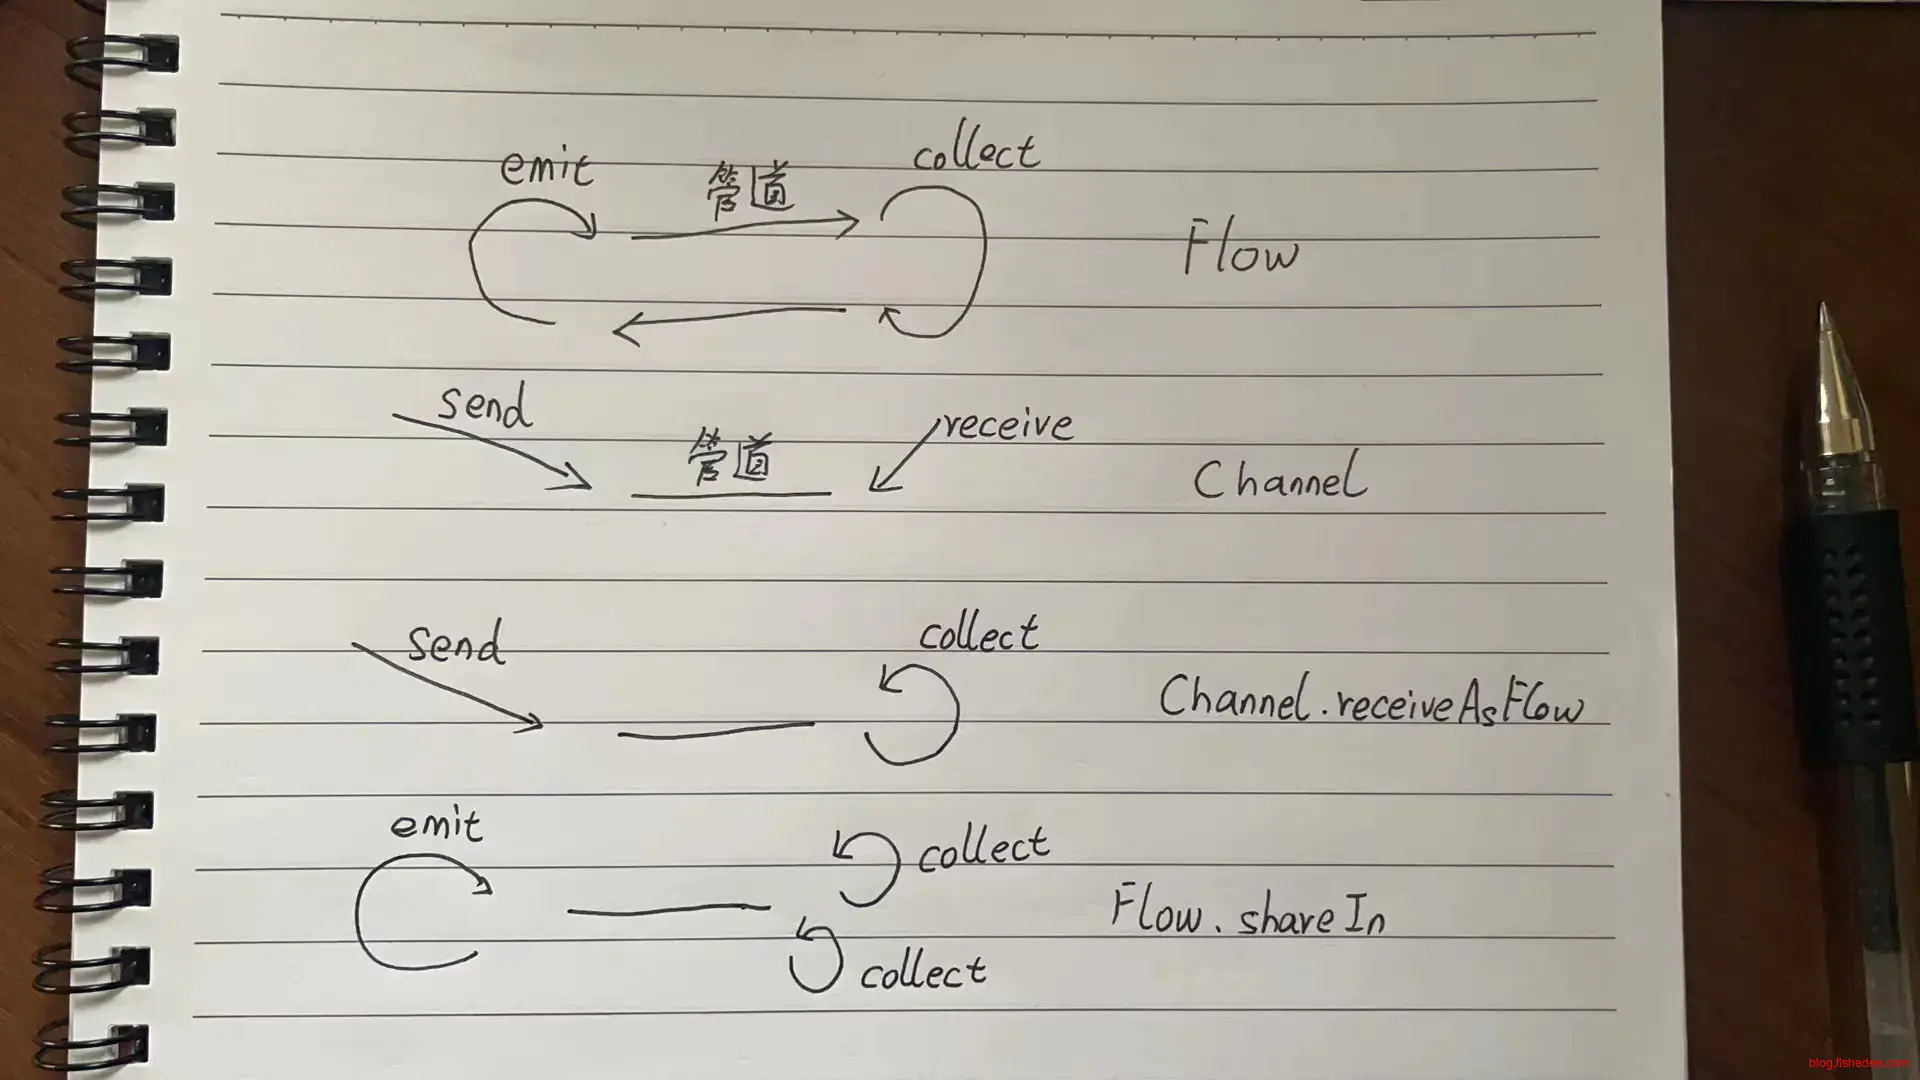 emit 管道 collect
Flow
send 管道 receive
Channel
send collect
Channel.receiveAsFlow
emit collect
Flow.shareIn
collect
blog.fishedee.com